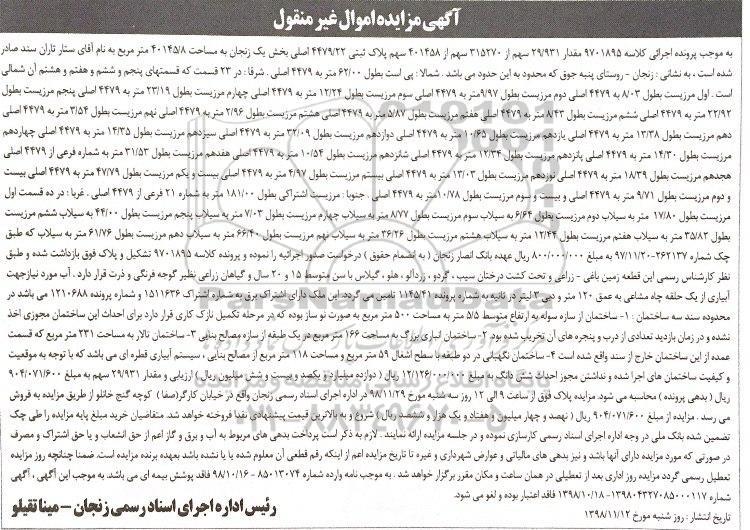 آگهی مزایده اموال غیر منقول
به موجب پرونده اجرائی کلاسه ۹۷۰۱۸۹۵ مقدار ۲۹/۹۳۱ سهم از ۳۱۵۲۷۰ سهم از ۴۰۱۴۵۸ سهم پلاک ثبتی ۴۴۷۹/۲۲ اصلی بخش یک زنجان به مساحت ۴۰۱۴۵/۸ متر مربع به نام آقای ستار تاران سند صادر
شده است ، به نشانی : زنجان - روستای پنبه جوق که محدود به این حدود می باشد . شمالا : پی است بطول ۶۲/۰۰ متر به ۴۴۷۹ اصلی . شرقا : در ۲۳ قسمت که قسمتهای پنجم و ششم و هفتم و هشتم آن شمالی
است . اول مرزیست بطول ۸/۰۳ به ۴۴۷۹ اصلی دوم مرزیست بطول ۹/۹۷ متر به ۴۴۷۹ اصلی سوم مرزیست بطول ۱۲/۲۴ متر به ۴۴۷۹ اصلی چهارم مرزیست بطول ۲۳/۱۹ متر به ۴۴۷۹ اصلی پنجم مرزیست بطول
۲۲/۹۲ متر به ۴۴۷۹ اصلی ششم مرزیست بطول ۸/۴۳ متر به ۴۴۷۹ اصلی هفتم مرزیست بطول ۵/۸۷ متر به ۴۴۷۹ اصلی هشتم مرزیست بطول ۲/۹۶ متر به ۴۴۷۹ اصلی نهم مرزیست بطول ۳/۵۴ متر به ۴۴۷۹ اصلی
دهم مرزیست بطول ۱۳/۳۸ متر به ۴۴۷۹ اصلی یازدهم مرزیست بطول ۱۰/۶۵ متر به ۴۴۷۹ اصلی دوازدهم مرزیست بطول ۳۲/۰۹ متر به ۴۴۷۹ اصلی سیزدهم مرزیست بطول ۱۴/۳۵ متر به ۴۴۷۹ اصلی چهاردهم
مرزیست بطول ۱۴/۳۰ متر به ۴۴۷۹ اصلی پانزدهم مرزیست بطول ۱۲/۳۴ متر به ۴۴۷۹ اصلی شانزدهم مرزیست بطول ۱۰/۵۴ متر به ۴۴۷۹ اصلی هفدهم مرزیست بطول ۳۱/۵۳ متر به شماره فرعی از ۴۴۷۹ اصلی
هجدهم مرزیست بطول ۱۸/۳۹ متر به ۴۴۷۹ اصلی نوزدهم مرزیست بطول ۱۳/۰۳ متر به ۴۴۷۹ اصلی بیستم مرزیست بطول ۴/۹۷ متر به ۴۴۷۹ اصلی بیست و یکم مرزیست بطول ۴۷/۷۹ متر به ۴۴۷۹ اصلی بیست
و دوم مرزیست بطول ۹/۷۱ متر به ۴۴۷۹ اصلی و بیست و سوم مرزیست بطول ۱۰/۷۸ متر به ۴۴۷۹ اصلی . جنوبا : مرزیست اشتراکی بطول ۱۸۱/۰۰ متر به شماره ۲۱ فرعی از ۴۴۷۹ اصلی . غربا : در ده قسمت اول
مرزیست بطول ۱۷/۸۰ متر به سیلاب دوم مرزیست بطول ۶/۶۴ به سیلاب سوم مرزیست بطول ۸/۷۷ متر به سیلاب چهارم مرزیست بطول ۷/۰۳ متر به سیلاب پنجم مرزیست بطول ۴۴/۰۰ به سیلاب ششم مرزیست
بطول ۳۵/۸۳ متر به سیلاب هفتم مرزیست بطول ۱۲/۴۴ متر به سیلاب هشتم مرزیست بطول ۳۶/۲۶ متر به سیلاب نهم مرزیست بطول ۶۶/۴۰ متر به سیلاب دهم مرزیست بطول ۶۱/۷۶ متر به سیلاب که طبق
چک شماره ۲۶۲۱۳۷-۹۷/۱۱/۲۰ به مبلغ ۸۰۰/۰۰۰/۰۰۰ ریال عهده بانک انصار زنجان ( به انضمام حقوق ) درخواست صدور اجرائیه را نموده و پرونده کلاسه ۹۷۰۱۸۹۵ تشکیل و پلاک فوق بازداشت شده و طبق
نظر کارشناس رسمی این قطعه زمین باغی - زراعی و تحت کشت درختان سیب ، گردو ، زردآلو ، هلو ، گیلاس با سن متوسط ۱۵ و ۲۰ سال و گیاهان زراعی نظیر گوجه فرنگی و ذرت قرار دارد . آب مورد نیازجهت
آبیاری از یک حلقه چاه مشاعی به عمق ۱۲۰ متر و دبی ۳ لیتر در ثانیه به شماره پرونده ۱۱۴۵/۴۱ تامین می گردد. این ملک دارای اشتراک برق به شماره اشتراک ۱۵۱۱۶۳۶ و شماره پرونده ۱۲۱۰۶۸۸ می باشد در
محدوده سند سه ساختمان : ۱- ساختمان از سازه سوله به ارتفاع متوسط ۵/۵ متر به مساحت ۵۰۰ متر مربع به صورت نو ساز بوده که در مرحله تکمیل نازک کاری قرار دارد برای احداث این ساختمان مجوزی اخذ
نشده و در زمان بازدید تعدادی از درب و پنجره های آن تخریب شده بود. ۲- ساختمان انباری بزرگ به مساحت ۱۶۶ متر مربع در یک طبقه از سازه مصالح بنایی ۳- ساختمان تالار به مساحت ۲۳۱ متر مربع که قسمت
عمده از این ساختمان خارج از سند واقع شده است ۴- ساختمان نگهبانی در دو طبقه با سطح اشغال ۵۹ متر مربع و مساحت ۱۱۸ متر مربع از مصالح بنایی ، سیستم آبیاری قطره ای می باشد که با توجه به موقعیت
و کیفیت ساختمان های اجرا شده و نداشتن مجوز احداث شش دانگ به مبلغ ۱۲/۱۲۶/۰۰۰/۰۰۰ ریال ( دوازده میلیارد و یکصد و بیست و شش میلیون ریال ) ارزیابی و مقدار ۲۹/۹۳۱ سهم به مبلغ ۹۰۴/۰۷۱/۶۰۰
ریال ( بدهی پرونده ) محاسبه می شود. مزایده پلاک فوق از ساعت ۹ الی ۱۲ روز سه شنبه مورخ ۹۸/۱۱/۲۹ در اداره اجرای اسناد رسمی زنجان واقع در خیابان کارگر(صفا) کوچه گنج خانلو از طریق مزایده به فروش
می رسد . مزایده از مبلغ ۹۰۴/۰۷۱/۶۰۰ ریال ( نهصد و چهار میلیون و هفتاد و یک هزار و ششصد ریال ) شروع و به بالاترین قیمت پیشنهادی نقدا فروخته خواهد شد. متقاضیان خرید مبلغ پایه مزایده را طی چک
تضمین شده بانک ملی در وجه اداره اجرای اسناد رسمی کارسازی نموده و در جلسه مزایده ارائه نمایند . لازم به ذکر است پرداخت بدهی های مربوط به آب و برق و گاز اعم از حق انشعاب و یا حق اشتراک و مصرف
در صورتی که مورد مزایده دارای آنها باشد و نیز بدهی های مالیاتی و عوارض شهرداری و غیره تا تاریخ مزایده اعم از اینکه رقم قطعی آن معلوم شده یا نا شده باشد بعهده برنده مزایده است. ضمنا چنانچه روز مزایده
تعطیل رسمی گردد مزایده روز اداری بعد از تعطیلی در همان ساعت و مکان مقرر برگزار خواهد شد . به موجب نامه وارده شماره ۸۵۰۱۳۰۷۴ - ۹۸/۱۰/۱۶ فاقد پوشش بیمه ای می باشد. به موجب این آگهی ، آگهی
شماره ۱۳۹۸۰۴۳۲۷۰۸۵۰۰۰۱۱۷-۱۳۹۸/۱۰/۱۸ فاقد اعتبار بوده و لغو می شود.
تاریخ انتشار : روز شنبه مورخ ۱۳۹۸/۱۱/۱۲
رئیس اداره اجرای اسناد رسمی زنجان - مینا تقیلو